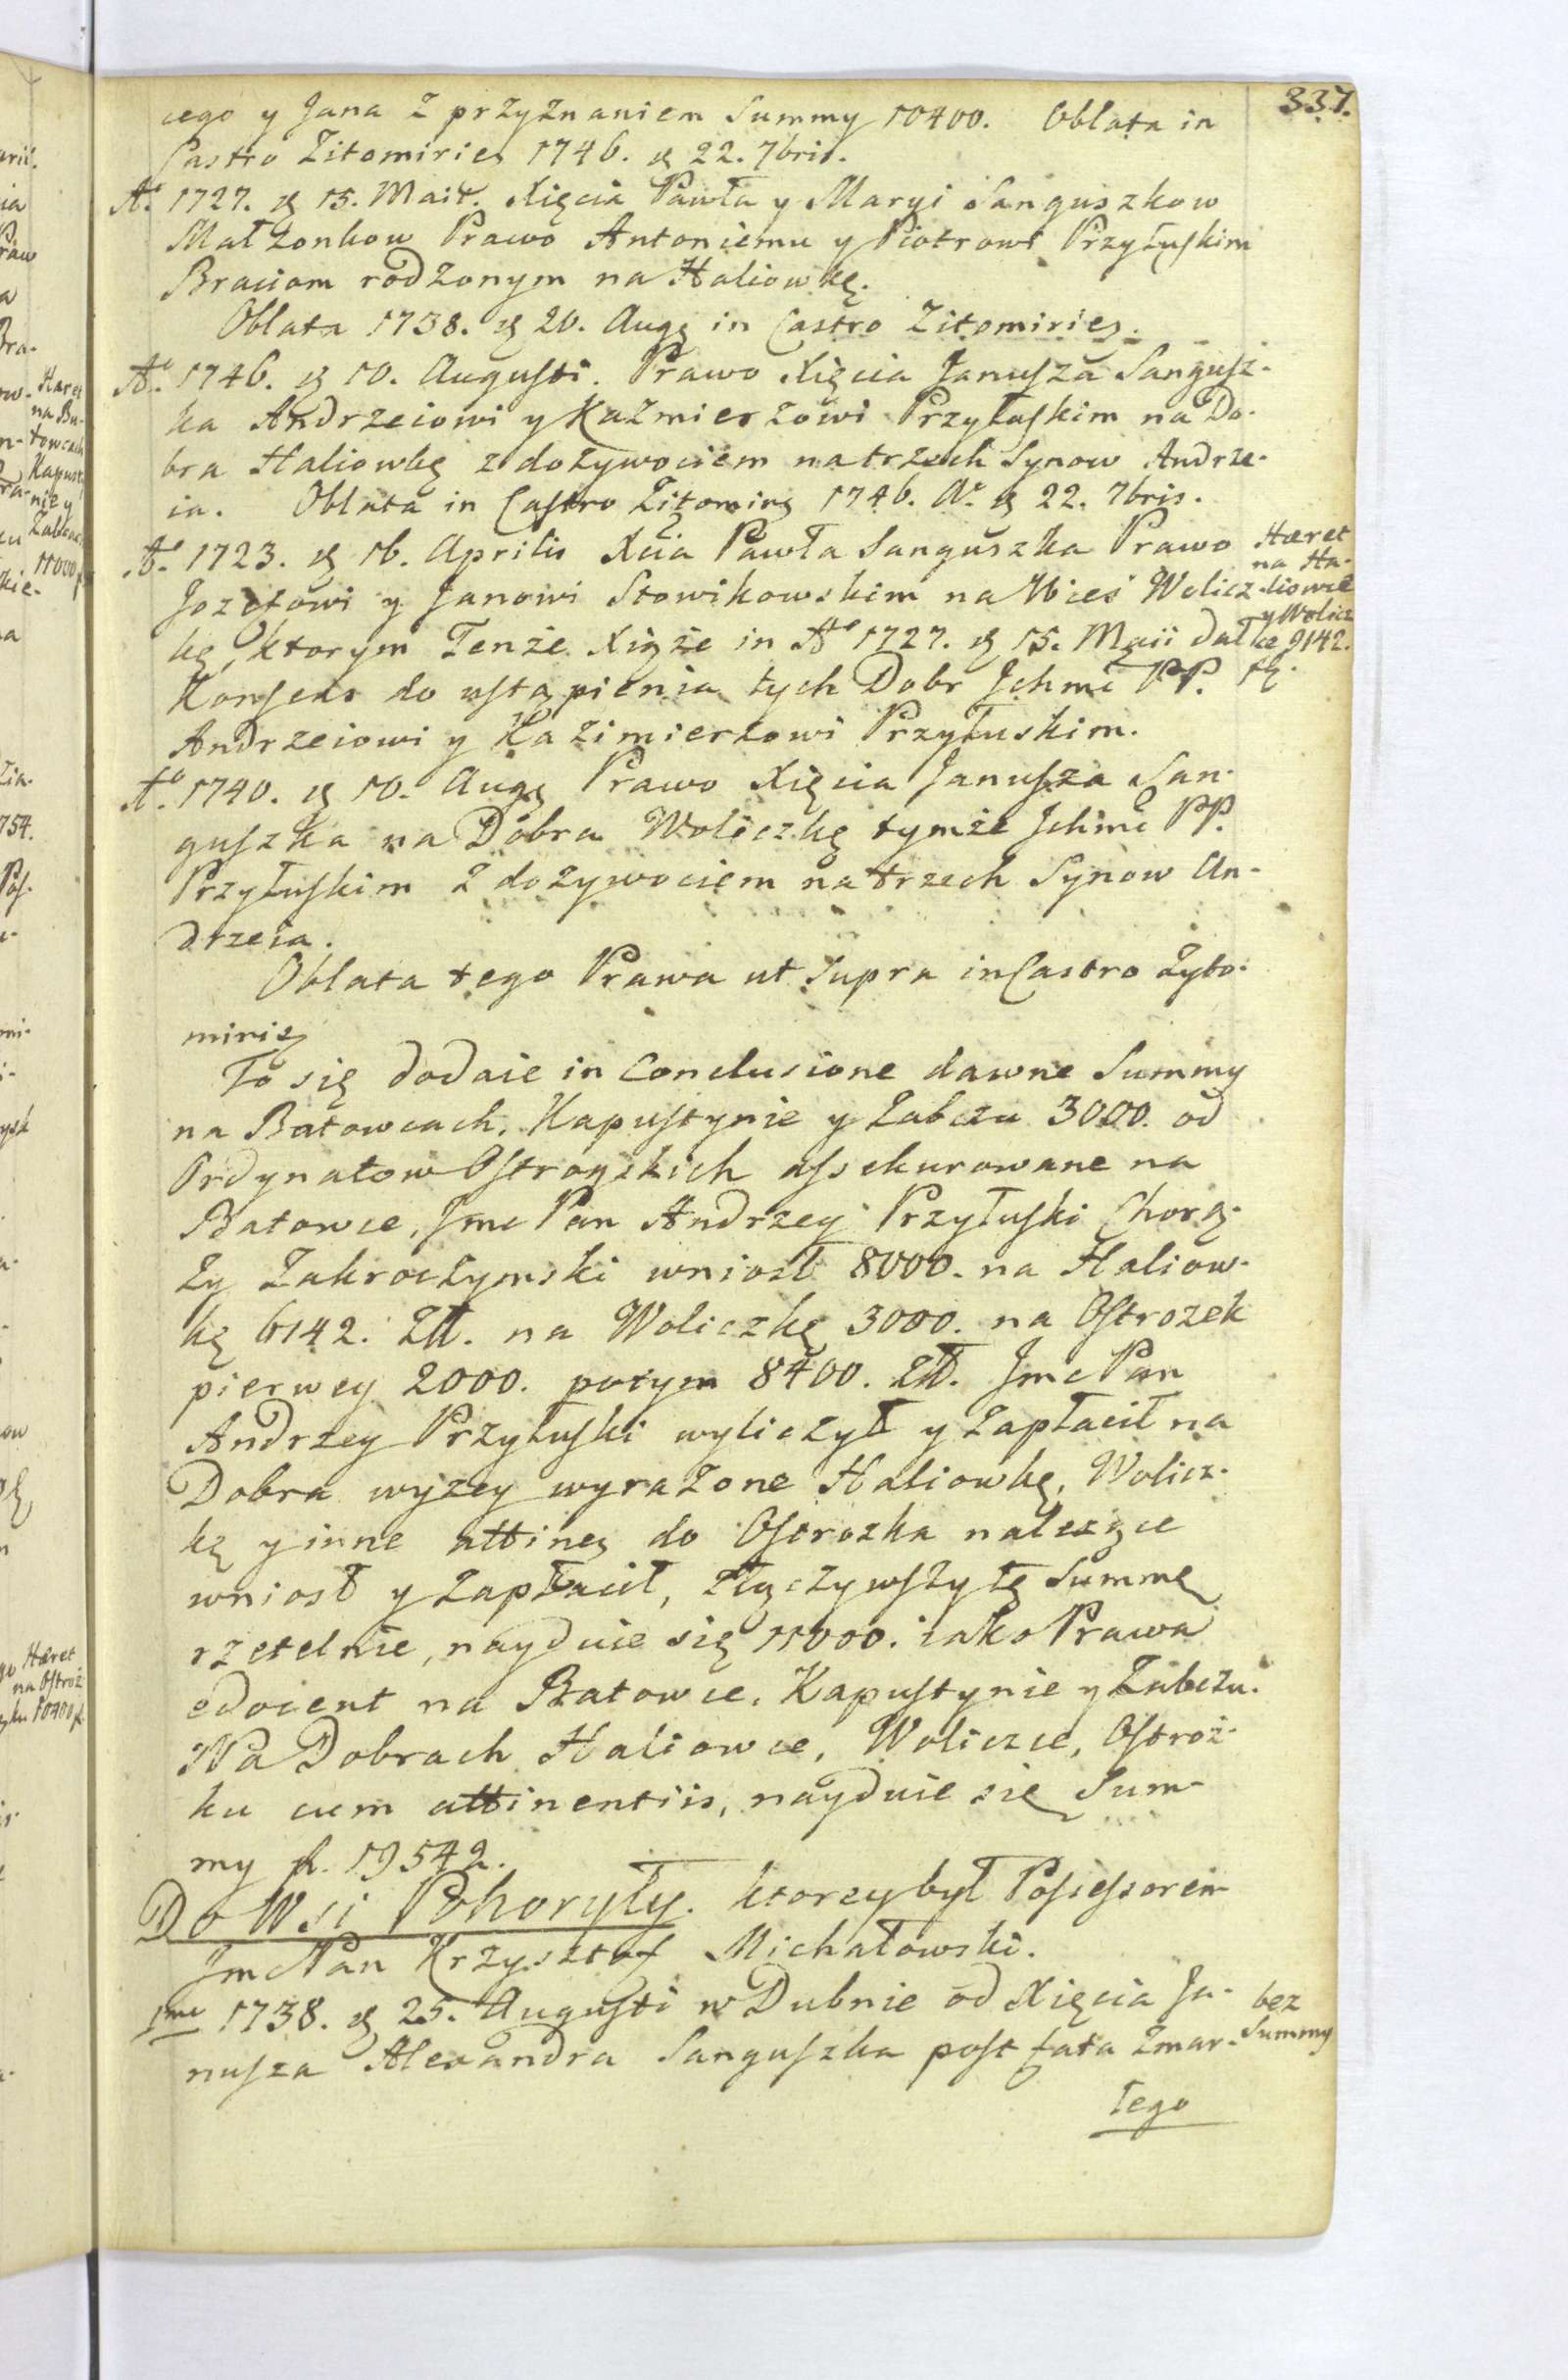 337.
cego y Jana z przyznaniem Summy 10400. Oblata in
Castro Zitomiries 1746. d 22. 7bris.
Aº 1727. d 15. Maii. Xięcia Pawła y Maryi Sanguszkow
Małżonkow Prawo Antoniemu y Piotrowi Przyłuskim
Braciom rodzonym na Haliowkę.
Oblata 1738. d 20. Augę in Castro Zitomiries.
Aº 1746. d 10. Augusti. Prawo Xięcia Janusza Sangusz-
ka Andrzeiowi y Kazmierzowi Przyłuskim na Do-
bra Haliowkę z dożywociem na trzech Synow Andrze-
ia. Oblata in Castro Zitomirę 1746. Aº d 22. 7bris.
Aº 1723. d 16. Aprilis Xcia Pawła Sanguszka Prawo
Jozefowi y Janowi Słowikowskim na Wieś Wolicz-
kę, ktorym Tenże Xiąże in Aº 1727. d 15. Maii dał
Konsens do ustąpienia tych Dobr Jchmć PP.
Andrzeiowi y Kazimierzowi Przyłuskim.
Hæret
na Ha-
liowce
y Wolicz
ce 9142.
Aº 1740. d 10. Augę Prawo Xięcia Janusza San-
guszka na Dobra Woliczkę tymże Jchmć PP.
Przyłuskim z dożywociem na trzech Synow An-
drzeia.
Oblata tego Prawa ut supra in Castro Zyto-
miries
To się dodaie in Conclusione dawne Summy
na Batowcach, Kapustynie y Zabczu 3000. od
Ordynatow Ostrogskich assekurowane na
Batowce, Jmc Pan Andrzey Przyłuski Chorą-
ży Zakroczymski wniosł 8000. na Haliow-
kę 6142. Złł. na Woliczkę 3000. na Ostrożek
pierwey 2000. potym 8400. złł. Jmc Pan
Andrzey Przyłuski wyliczył y zapłacił na
Dobra wyżey wyrażone Haliowkę, Wolicz-
kę y inne attineę do Ostrożka należące
wniosł y zapłacił, złączywszy tę Summę
rzetelnie, nayduie się 11000. iako Prawa
edocent na Batowce, Kapustynie y Zabczu.
Na Dobrach Haliowce, Woliczce, Ostroż-
ku cum attinentiis, nayduie się Sum-
my fl. 19542.
Do Wsi Pohoryły. ktorzy był Possessorem
Jmc Pan Krzysztof Michałowski.
1mo 1738. d 25. Augusti w Dubnie od Xięcia Ja-
nusza Alexandra Sanguszka post fata Zmar-
bez
Summy
łego